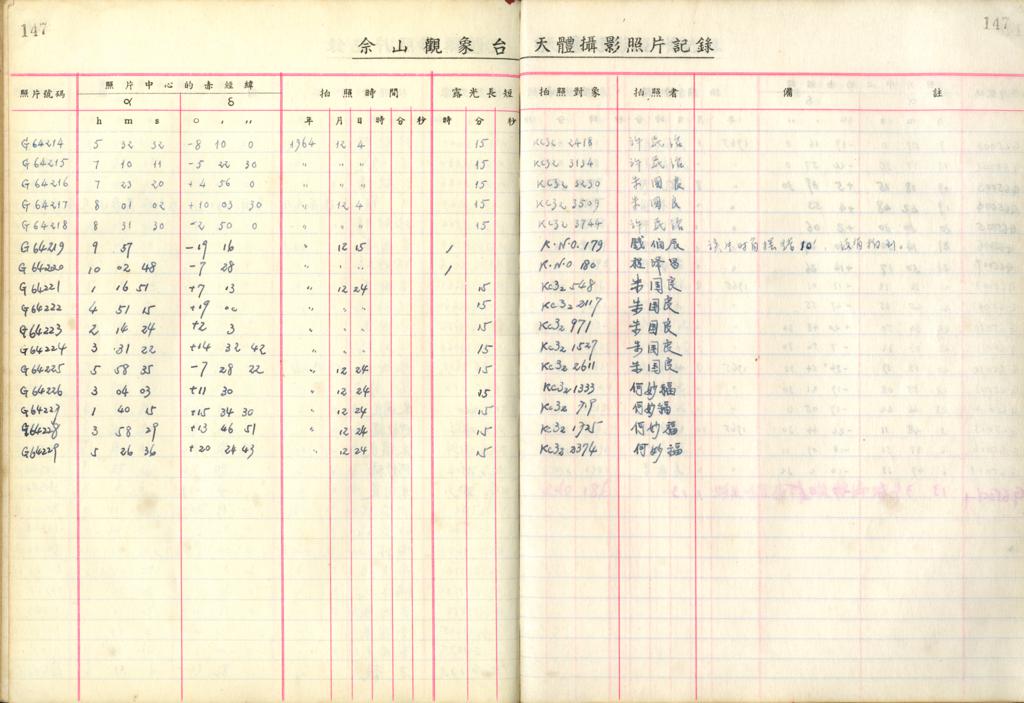 147 147
佘山觀象台 天體攝影照片記錄
照片號碼 照片中心的赤經緯 拍照時間 露光長短 拍照對象 拍照者 備 註
α δ
h m s ○ , ,, 年 月 日 時 分 秒 時 分 秒
G64214 5 32 32 -8 10 0 1964 12 4 15 KC32 2418 许民治
G64215 7 10 11 -5 22 30 " " " 15 KC32 3134 许民治
G64216 7 23 20 +4 56 0 " " " 15 KC32 3230 朱国良
G64217 8 01 02 +10 03 30 " 12 4 15 KC32 3509 朱国良
G64218 8 31 30 -2 50 0 " " " 15 KC32 3744 许民治
G64219 9 57 -19 16 " 12 15 1 R.N.O. 179 10
G64220 10 02 48 -7 28 " " " 1 R.N.O 180
G64221 1 16 51 +7 13 " 12 24 15 KC32 548 朱国良
G64222 4 51 15 +19 " " " 15 KC32 2117 朱国良
G64223 2 14 24 +2 3 " " " 15 KC32 971 朱国良
G64224 3 31 22 +14 32 42 " " " 15 KC32 1527 朱国良
G64225 5 58 35 -7 28 22 " 12 24 15 KC32 2611 朱国良
G64226 3 04 03 +11 30 " 12 24 15 KC32 1333 何妙福
G64227 1 40 15 +15 34 30 " 12 24 15 KC32 719 何妙福
G64228 3 58 29 +13 46 51 " 12 24 15 KC32 1725 何妙福
G64229 5 26 36 +20 24 43 " 12 24 15 KC32 2374 何妙福